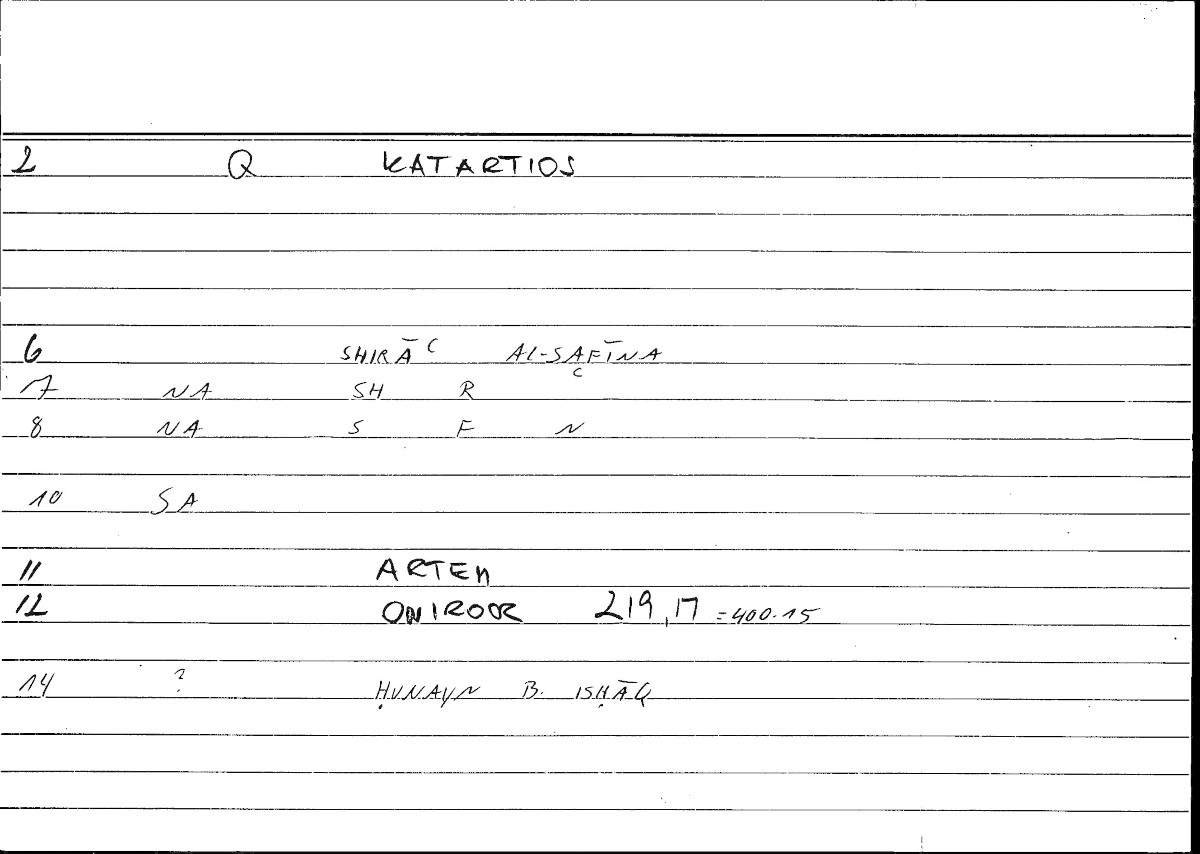 2 Q KATARTIOS
6 SHIRĀʿ AL-SAFĪNA
7 NA SH R ʿ
8 NA S F N
10 SA
11 ARTEM
12 ONIROCR 219,17 =400.15
14 ? ḤUNAYN B. ISḤĀQ